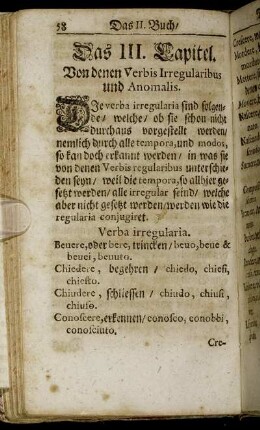 58 Das II. Buch/
Das III. Capitel.
Von denen Verbis Irregularibus
und Anomalis.
DIe verba irregularia sind folgen-
de/ welche/ ob sie schon nicht
durchaus vorgestellt werden/
nemlich durch alle tempora, und modos,
so kan doch erkannt werden/ in was sie
von denen Verbis regularibus unterschie-
den seyn/ weil die tempora, so allhier ge-
setzt werden/ alle irregular seind/ welche
aber nicht gesetzt werden/ werden wie die
regularia conjugiret.
Verba irregularia.
Bevere, oder bere, trincken/ bevo, beve &
bevei, bevuto.
Chiedere, begehren / chiedo, chiesi,
chiesto.
Chiudere, schliessen / chiudo, chiusi,
chiuso.
Conoscere, erkennen/ conosco, conobbi,
conosciuto.
Cre-